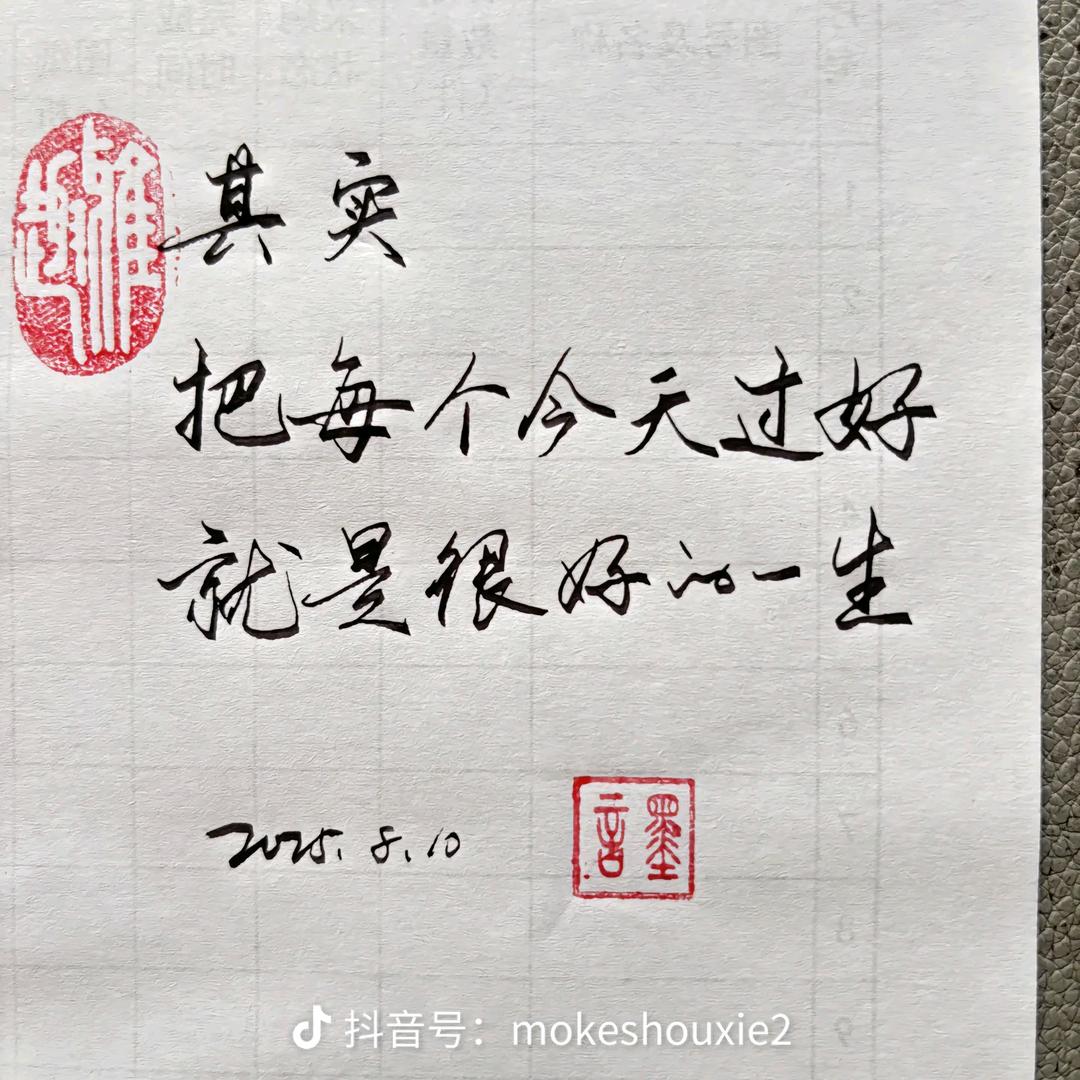 其实
把每个今天过好
就是很好的一生
2025.8.10
墨言
雅趣
抖音号：mokeshouxie2